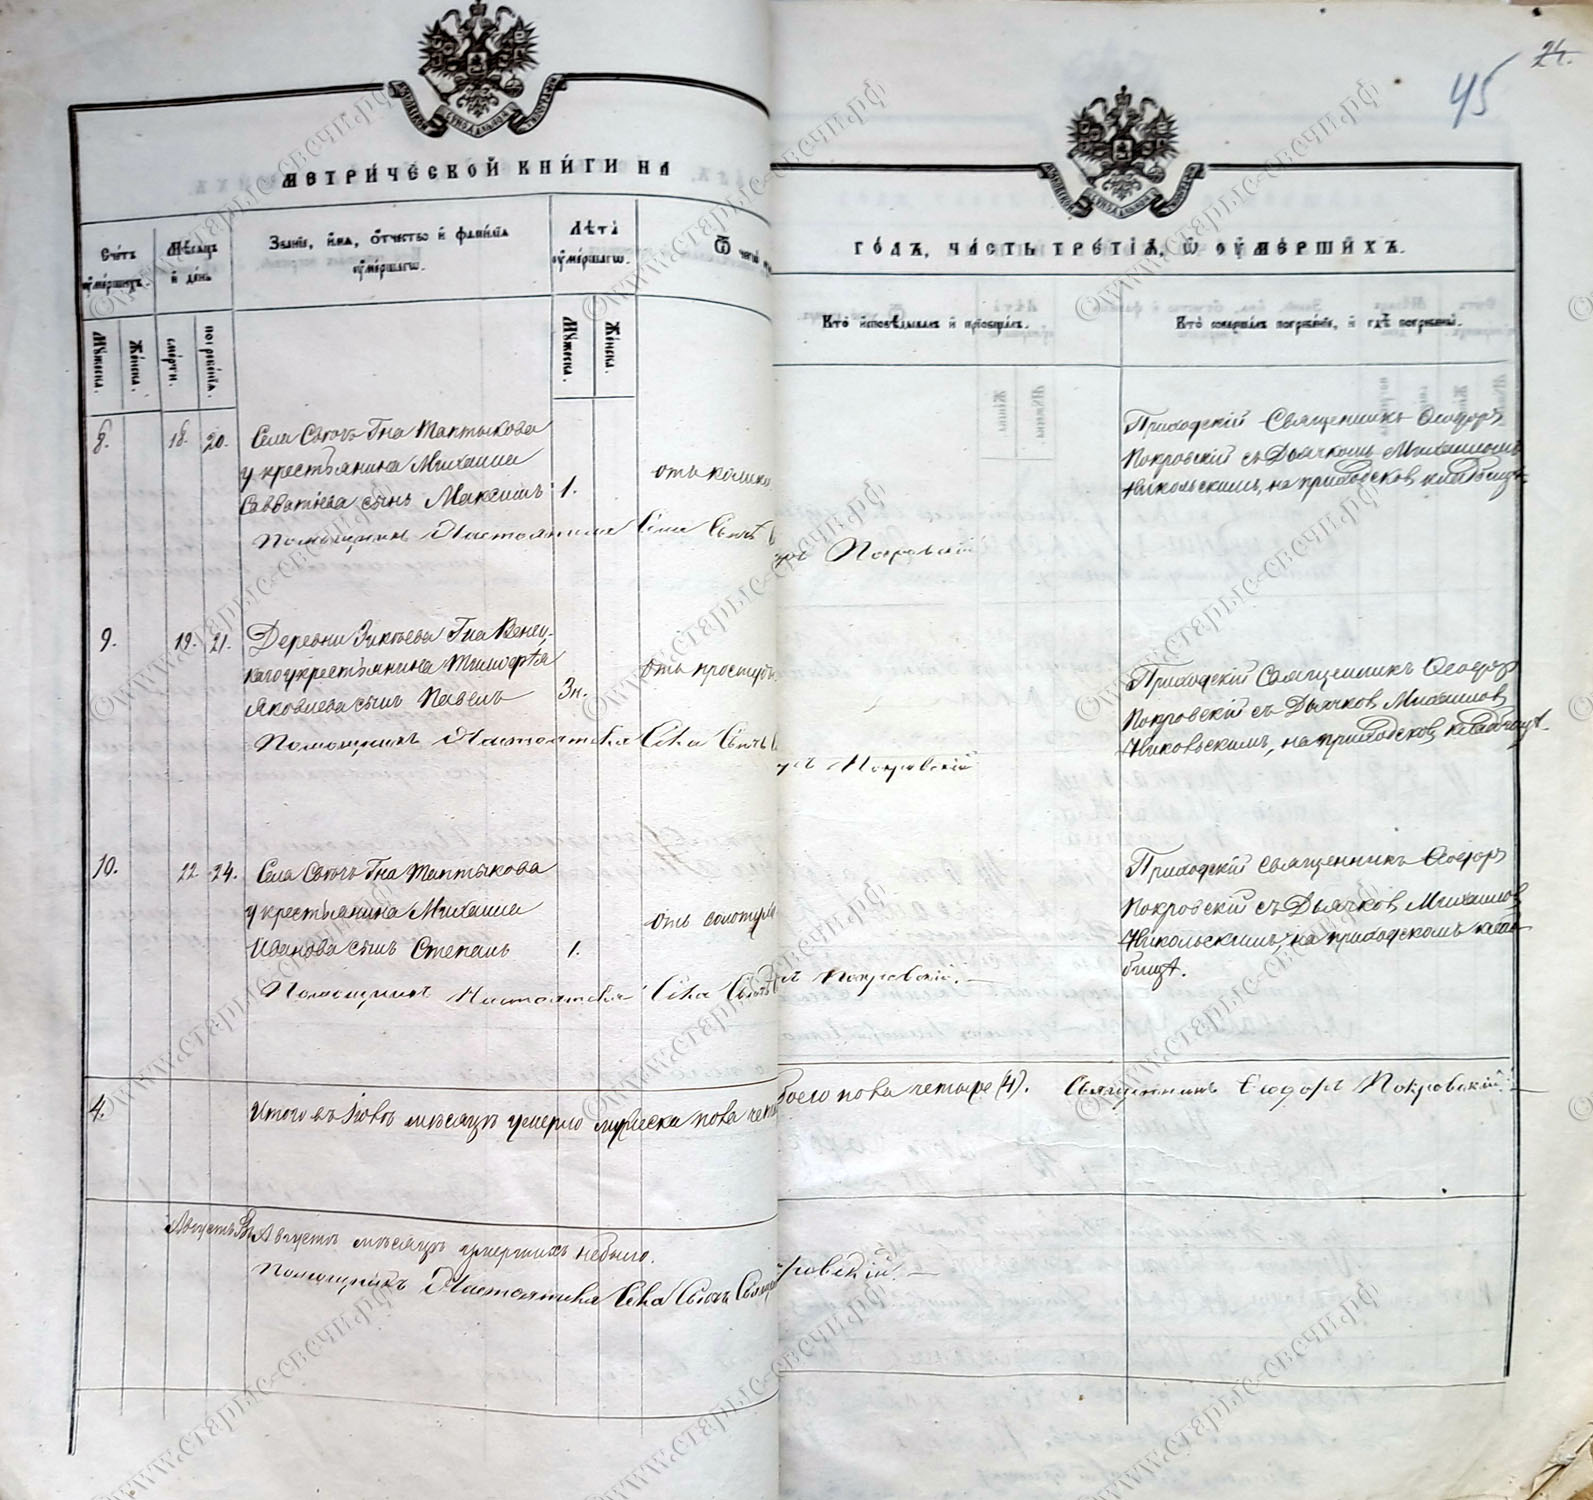 45
24.
МЕТРИ́ЧЕСКОЙ КНИ́ГИ НА
ГО́ДЪ, ЧА́СТЬ ТРЕ́ТІѦ, Ѽ ОУМЕ́РШИХЪ.
Счётъ оумершихъ.
Мѣсяцъ и день
Званіе, имя, отчество и фамилія оумершагѡ.
Лѣта оумершагѡ.
Ѿ чегѡ
Кто исповѣдывалъ и пріобщалъ.
Кто совершалъ погребеніе, и гдѣ погребены.
Мужеска.
Женска.
смерти.
погребенія.
Мужеска.
Женска.
8. 18. 20. Села Сюгъ Гна Таптыкова
у крестьянина Михаила
Савватѣева сынъ Максимъ 1.
отъ колики
Приходскій Священникъ Ѳеодоръ
Покровскій съ Дьячкомъ Михаиломъ
Никольскимъ, на приходском кладбищѣ
Помощникъ Настоятеля Села
Покровскій
9. 19. 21. Деревни Гна
крестьянина Тимофѣя
Яковлева сынъ Павелъ 3н.
отъ простуды
Приходскій Священникъ Ѳеодоръ
Покровскій съ Дьячком Михаилом
Никольскимъ, на приходском кладбищѣ.
Помощникъ Настоятеля Села
Покровскій
10. 22 24. Села Сюгъ Гна Таптыкова
у крестьянина Михаила
Иванова сынъ Степанъ 1.
отъ золотухи
Приходскій священникъ Ѳеодоръ
Покровскій съ Дьячком Михаилом
Никольскимъ, на приходскомъ клад-
бищѣ.
Помощникъ Настоятеля Села
Покровскій.
4. Итого въ Іюлѣ мѣсяцѣ умерло мужеска пола
обоего пола четыре (4). Священникъ Ѳеодоръ Покровскій
Августъ Въ Августѣ мѣсяцѣ умершихъ небыло.
Помощникъ Настоятеля Села
Покровскій.
©www.старыс-свсчи.рф